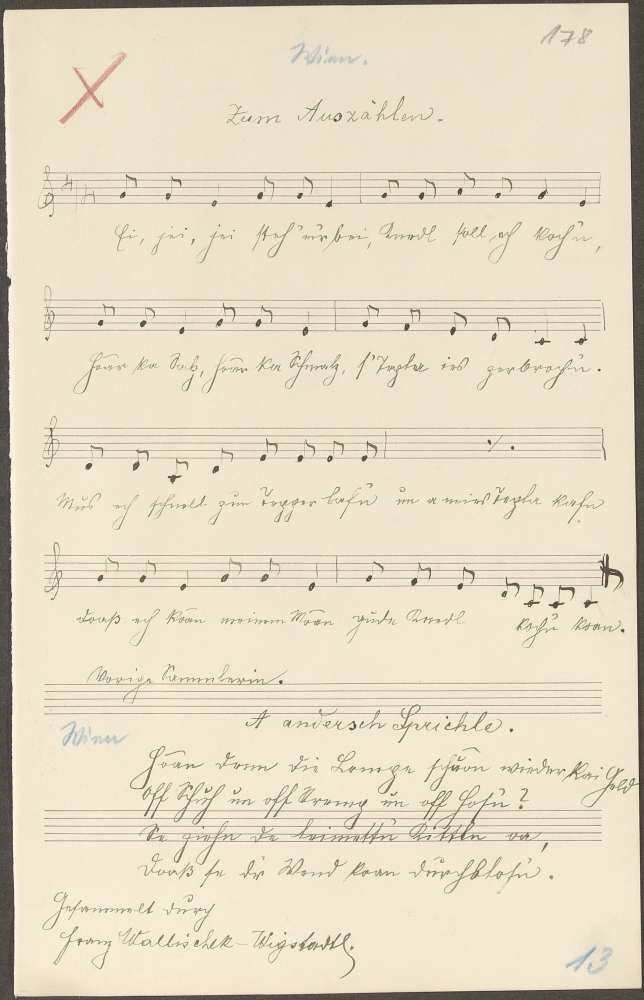 178
Wien.
Zum Auszählen.
Ei, jei, jei steh' vürbei, Knedl soll ech koch'n,
Hoar ka Salz, hoar ka Schmalz, s' Tepla is zerbroch'n.
Mus ech schnell zum Tepper lafn un a neies Tepla kafn
doaß ech koan meinem Moan gude Knedl koch'n koan.
Vorige Sammlerin.
A andersch Sprichle.
Wien
Hoan denn die Lompe schuon wieder kai Geld
Off Schuh un off Stremp un off Hosn?
Se ziehn de leimettn Kittln oa,
Doaß se d'r Wend koan durchblosn.
Gesammelt durch
Franz Wallischek - Wigstadtl.
13